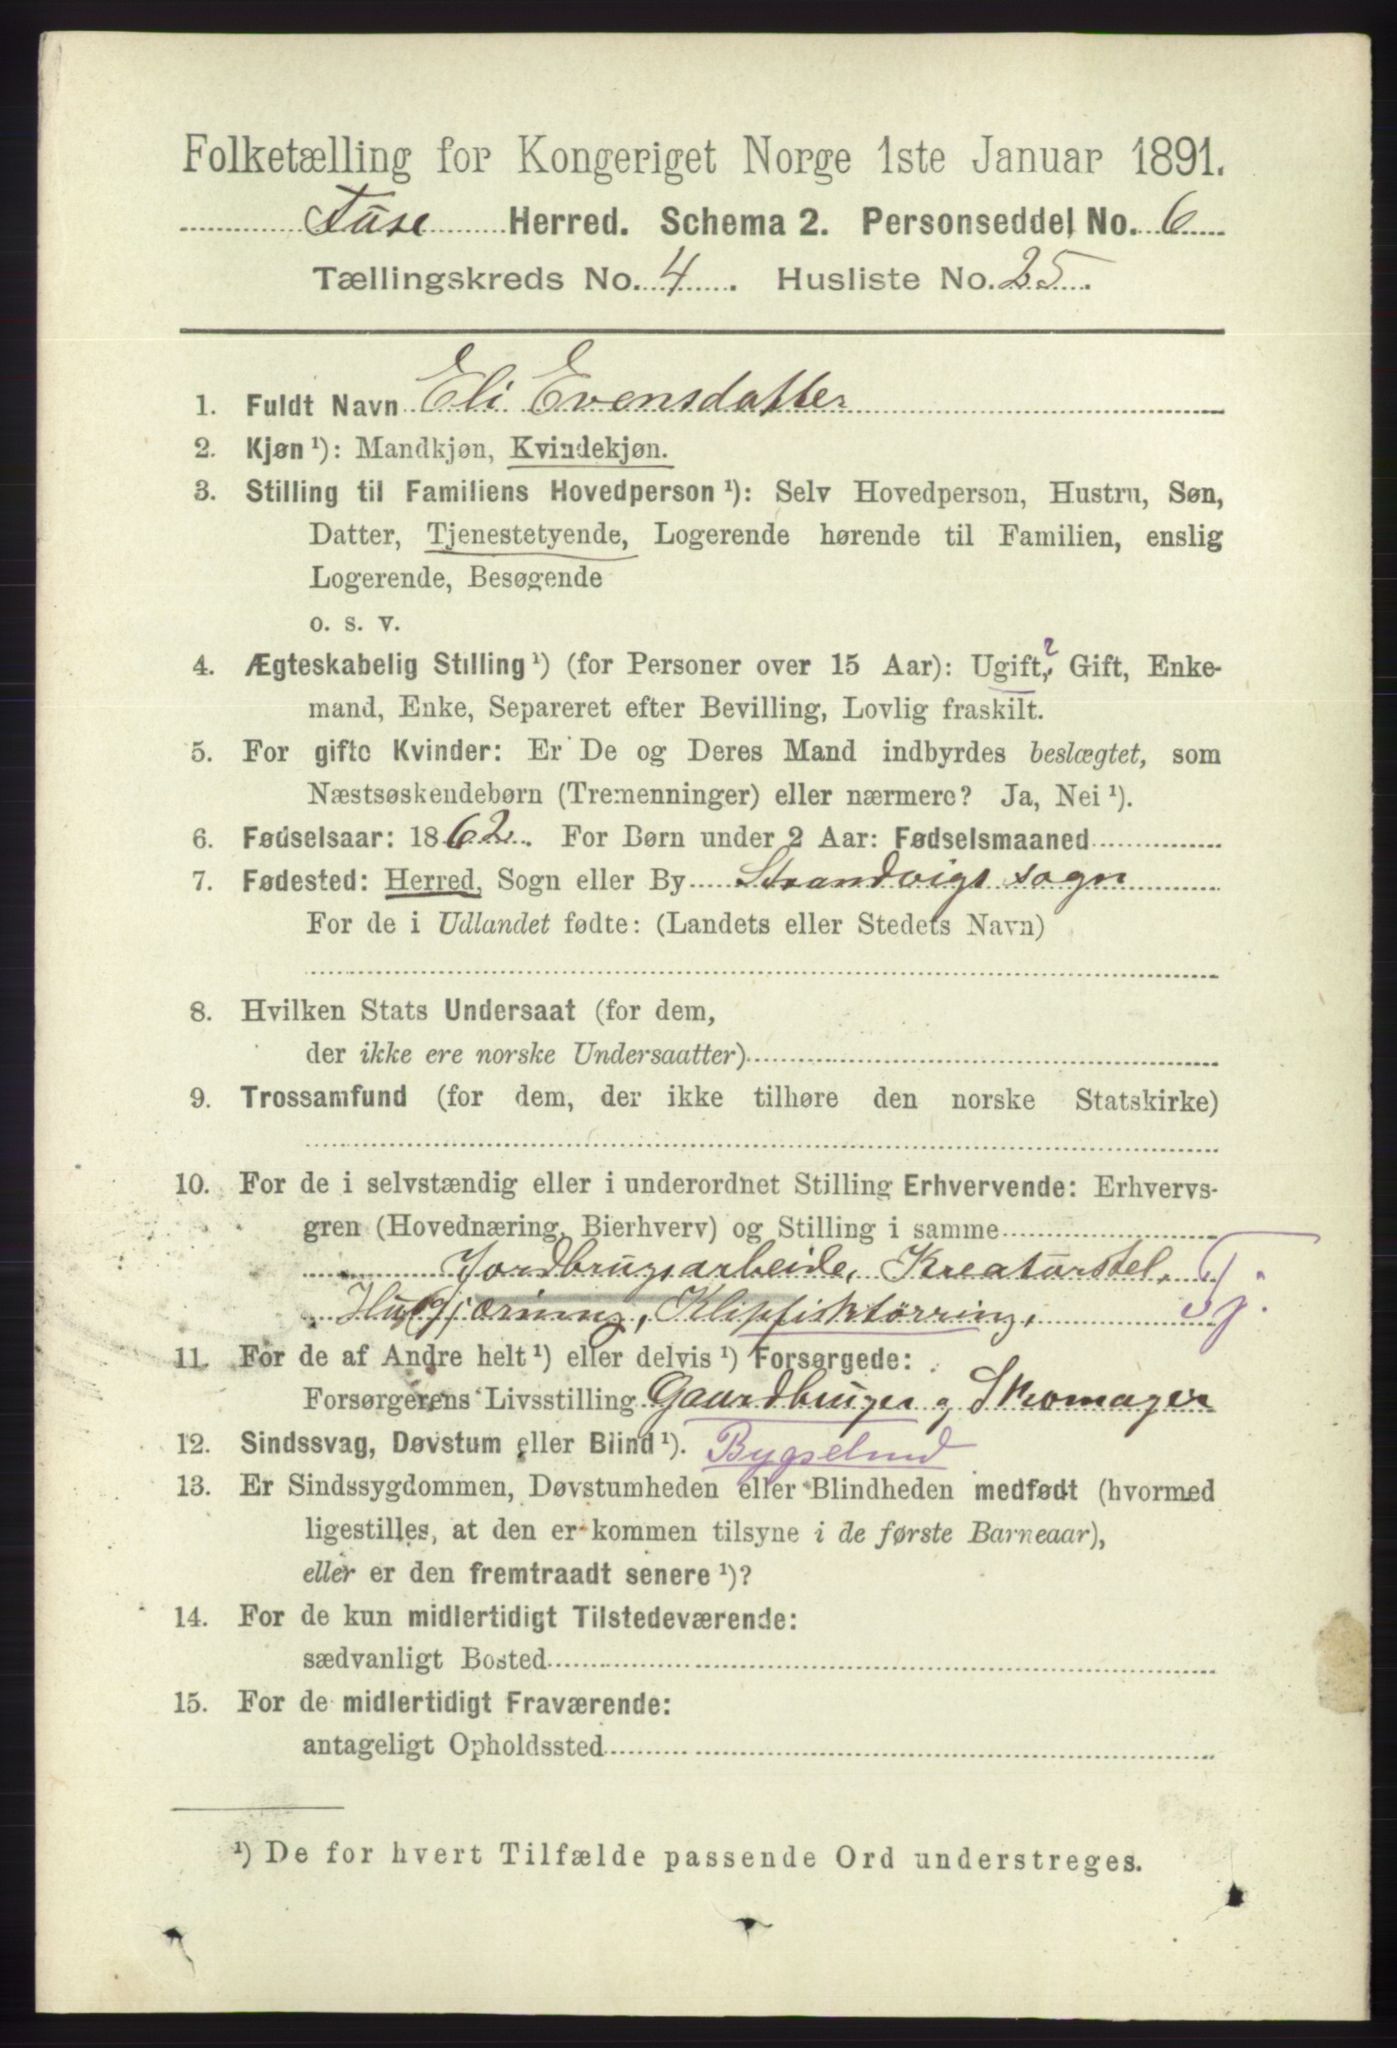 Folketælling for Kongeriget Norge 1ste Januar 1891.
Fuse Herred. Schema 2. Personseddel No. 6
Tællingskreds No. 4. Husliste No. 25.
1. Fuldt Navn Eli Evensdatter
2. Kjøn ¹): Mandkjøn, Kvindekjøn.
3. Stilling til Familiens Hovedperson ¹): Selv Hovedperson, Hustru, Søn,
Datter, Tjenestetyende, Logerende hørende til Familien, enslig
Logerende, Besøgende
o. s. v.
4. Ægteskabelig Stilling ¹) (for Personer over 15 Aar): Ugift,? Gift, Enke-
mand, Enke, Separeret efter Bevilling, Lovlig fraskilt.
5. For gifte Kvinder: Er De og Deres Mand indbyrdes beslægtet, som
Næstsøskendebørn (Tremenninger) eller nærmere? Ja, Nei ¹).
6. Fødselsaar: 1862. For Børn under 2 Aar: Fødselsmaaned
7. Fødested: Herred, Sogn eller By Strandvigs sogn
For de i Udlandet fødte: (Landets eller Stedets Navn)
8. Hvilken Stats Undersaat (for dem,
der ikke ere norske Undersaatter)
9. Trossamfund (for dem, der ikke tilhøre den norske Statskirke)
10. For de i selvstændig eller i underordnet Stilling Erhvervende: Erhvervs-
gren (Hovednæring, Bierhverv) og Stilling i samme
Jordbrugsarbeide, Kreaturstel, Tj.
Husgjærning, Klipfisktørring,
11. For de af Andre helt ¹) eller delvis ¹) Forsørgede:
Forsørgerens Livsstilling Gaardbruger og Skomager
12. Sindssvag, Døvstum eller Blind ¹). Bygselmd
13. Er Sindssygdommen, Døvstumheden eller Blindheden medfødt (hvormed
ligestilles, at den er kommen tilsyne i de første Barneaar),
eller er den fremtraadt senere ¹)?
14. For de kun midlertidigt Tilstedeværende:
sædvanligt Bosted
15. For de midlertidigt Fraværende:
antageligt Opholdssted
¹) De for hvert Tilfælde passende Ord understreges.